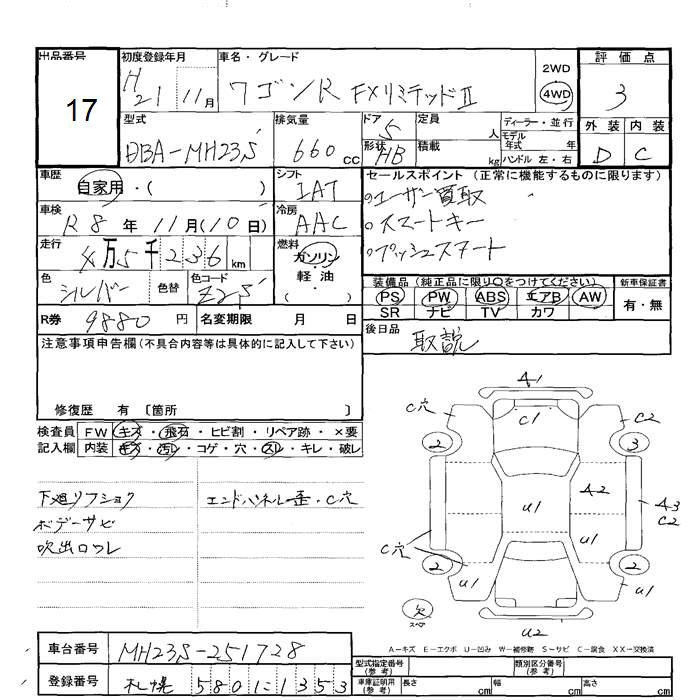 出品番号
17
初度登録年月
H
21 11月
車名・グレード
ワゴンR FXリミテッドⅡ
2WD
4WD
評価点
3
外装 内装
D C
型式
DBA-MH23S
排気量
660 cc
ドア
5
形状
HB
定員
人
積載
kg
ディーラー・並行
モデル
年式 年
ハンドル 左・右
車歴
自家用・( )
シフト
IAT
セールスポイント (正常に機能するものに限ります)
ユーザー買取
スマートキー
プッシュスタート
車検
R8年11月(10日)
冷房
AAC
走行
4万5千236km
燃料
ガソリン
・
軽油
( )
色
シルバー
色替
色コード
Z2S
装備品 (純正品に限り○をつけてください)
PS PW ABS エアB AW
SR ナビ TV カワ
新車保証書
有・無
R券 9880円
名変期限 月 日
後日品
取説
注意事項申告欄(不具合内容等は具体的に記入して下さい)
修復歴 有 〔箇所 〕
検査員
記入欄
FW キズ・飛石・ヒビ割・リペア跡・×要
内装 キズ・汚レ・コゲ・穴・スレ・キレ・破レ
下廻リフショク
ボデーサビ
吹出口ワレ
エンドパネル歪・C穴
A1
C穴
C1
C2
2
3
A2
U1
A3
C2
C穴
U1
2
2
U1
U1
欠
スペア
U2
A-キズ E-エクボ U-凹み W-補修跡 S-サビ C-腐食 XX-交換済
車台番号
MH23S-251728
登録番号
札幌 580に1353
型式指定番号
(参考)
類別区分番号
(参考)
車庫証明用
(参考)
長さ cm
幅 cm
高さ cm